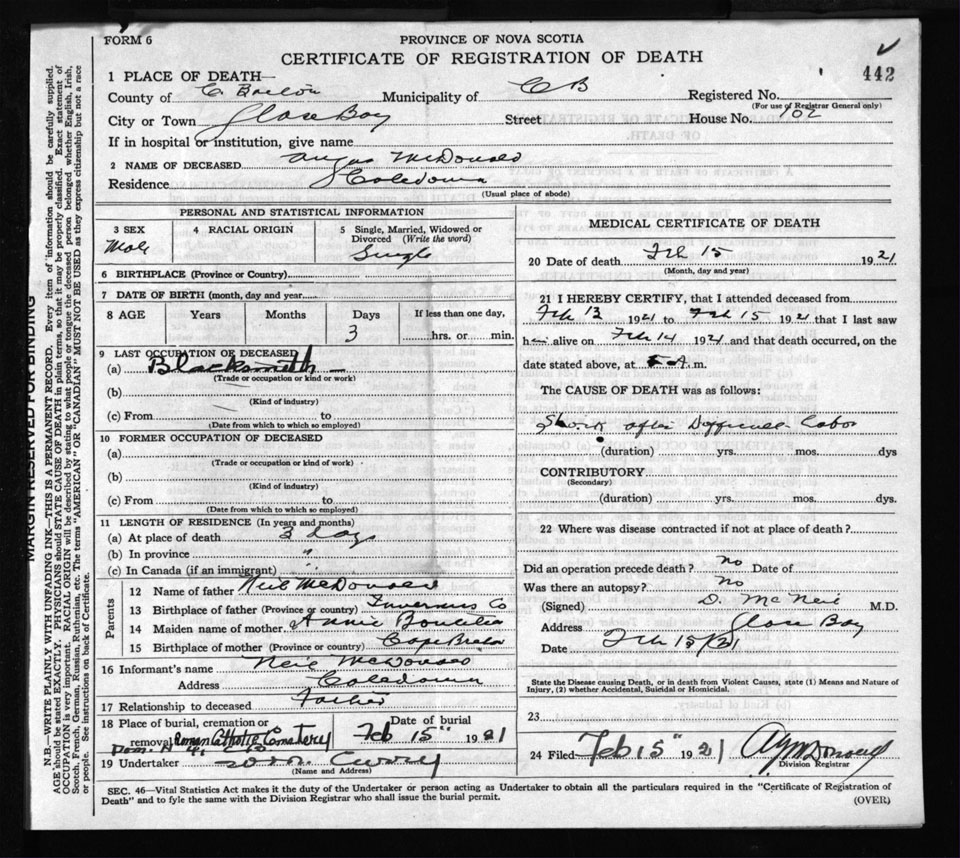 FORM 6
PROVINCE OF NOVA SCOTIA
CERTIFICATE OF REGISTRATION OF DEATH
442
1 PLACE OF DEATH—
County of C. Breton Municipality of C B Registered No.
(For use of Registrar General only)
City or Town Glace Bay Street House No. 102
If in hospital or institution, give name
2 NAME OF DECEASED Angus McDonald
Residence Caledonia
(Usual place of abode)
PERSONAL AND STATISTICAL INFORMATION
3 SEX Male
4 RACIAL ORIGIN
5 Single, Married, Widowed or Divorced (Write the word) Single
6 BIRTHPLACE (Province or Country)
7 DATE OF BIRTH (month, day and year
8 AGE Years Months Days 3 If less than one day, hrs. or min.
9 LAST OCCUPATION OF DECEASED
(a) Blacksmith –
(Trade or occupation or kind or work)
(b)
(Kind of industry)
(c) From to
(Date from which to which so employed)
10 FORMER OCCUPATION OF DECEASED
(a)
(Trade or occupation or kind of work)
(b)
(Kind of industry)
(c) From to
(Date from which to which so employed)
11 LENGTH OF RESIDENCE (In years and months)
(a) At place of death 3 Days
(b) In province "
(c) In Canada (if an immigrant) "
Parents
12 Name of father Neil McDonald
13 Birthplace of father (Province or country) Inverness Co
14 Maiden name of mother Annie
15 Birthplace of mother (Province or country) Cape Breton
16 Informant's name Neil McDonald
Address Caledonia
17 Relationship to deceased Father
18 Place of burial, cremation or removal Roman Catholic Cemetery
Date of burial Feb 15" 1921
19 Undertaker Curry
(Name and Address)
MEDICAL CERTIFICATE OF DEATH
20 Date of death Feb 15 1921
(Month, day and year)
21 I HEREBY CERTIFY, that I attended deceased from
Feb 13 1921 to Feb 15 1921 that I last saw
h alive on Feb 14 1921 and that death occurred, on the
date stated above, at A.m.
The CAUSE OF DEATH was as follows:
Shock after Difficult Labor
(duration) yrs. mos. dys
CONTRIBUTORY
(Secondary)
(duration) yrs. mos. dys.
22 Where was disease contracted if not at place of death?
Did an operation precede death? no Date of
Was there an autopsy? No
(Signed) D. McNeil M.D.
Address Glace Bay
Date Feb 15/21
State the Disease causing Death, or in death from Violent Causes, state (1) Means and Nature of
Injury, (2) whether Accidental, Suicidal or Homicidal.
23
24 Filed Feb 15" 1921
Division Registrar
SEC. 46—Vital Statistics Act makes it the duty of the Undertaker or person acting as Undertaker to obtain all the particulars required in the "Certificate of Registration of
Death" and to fyle the same with the Division Registrar who shall issue the burial permit.
(OVER)
MARGIN RESERVED FOR BINDING
N.B.—WRITE PLAINLY WITH UNFADING INK—THIS IS A PERMANENT RECORD. Every item of information should be carefully supplied.
AGE should be stated EXACTLY. PHYSICIANS should STATE CAUSE OF DEATH in plain terms, so that it may be properly classified. Exact statement of
OCCUPATION is very important. RACIAL ORIGIN will be described by stating to what people or tongue the deceased person belonged whether English, Irish,
Scotch, French, German, Russian, Ruthenian, etc. The terms "AMERICAN" OR "CANADIAN" MUST NOT BE USED as they express citizenship but not a race
or people. See instructions on back of Certificate.